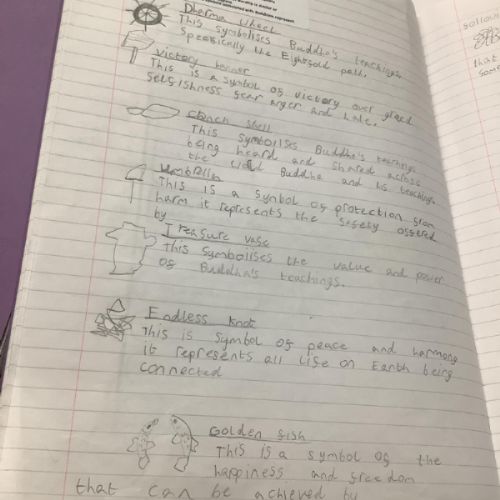 Dharma wheel
This symbolises Buddha's teachings
Specifically the Eightfold path.
Victory banner
This is a symbol of victory over greed
selfishness fear anger and hate.
Conch shell
This symbolises Buddha's teachings
being heard and shared across
the world Buddha and his teachings.
Umbrella
This is a symbol of protection from
harm it represents the safety offered
by
Treasure vase
This symbolises the value and power
of Buddha's teachings.
Endless knot
This is symbol of peace and harmony
it represents all life on Earth being
connected
Golden fish
This is a symbol of the
happiness and freedom
that can be achieved by
that
some